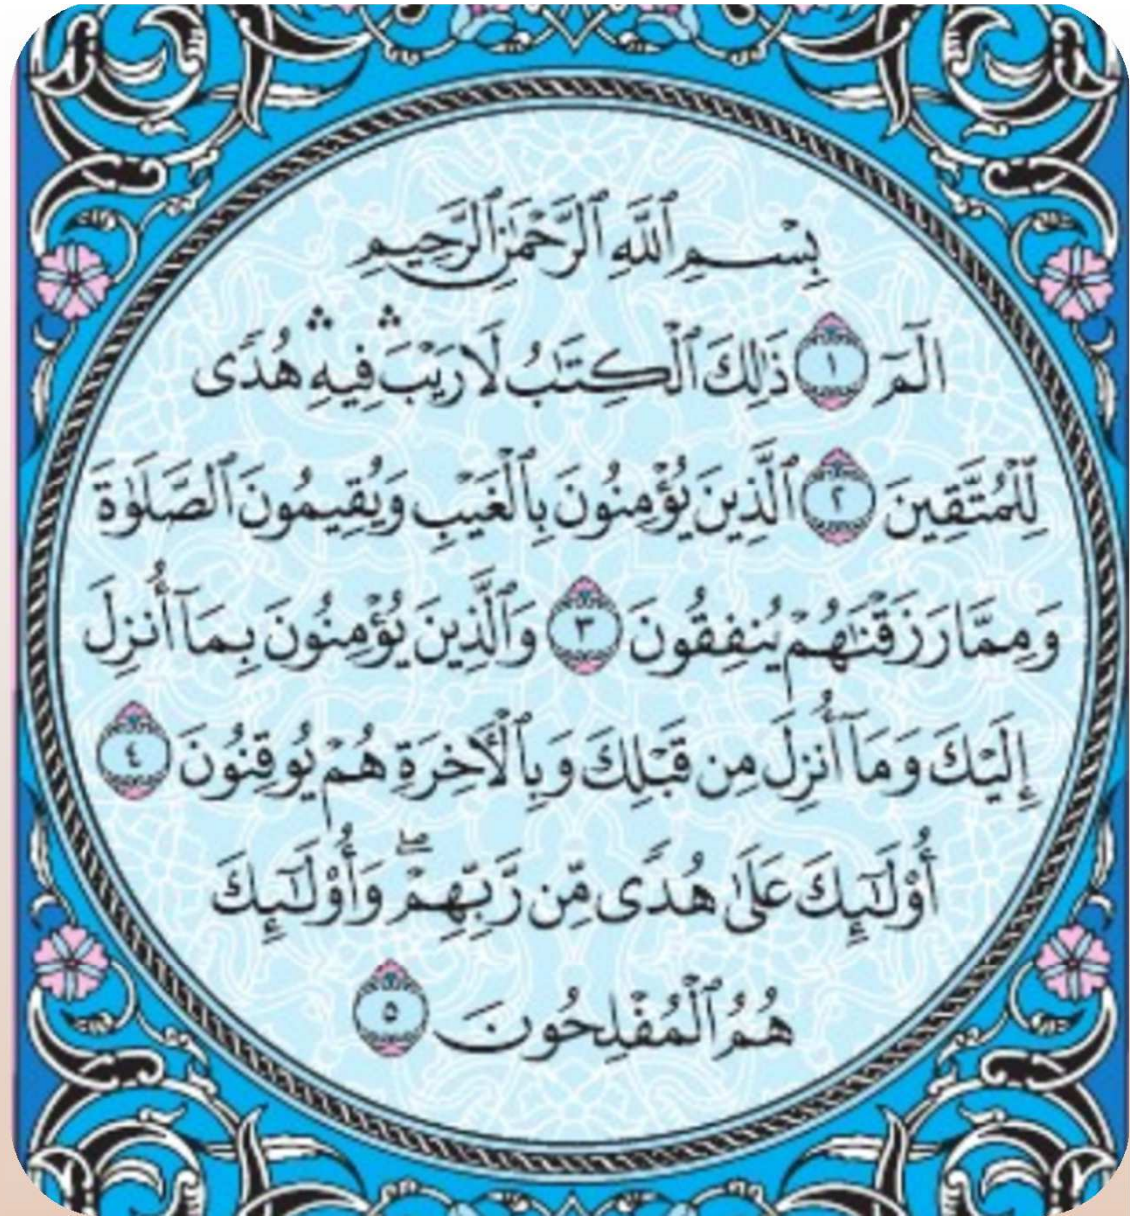 بِسْمِ ٱللَّهِ ٱلرَّحْمَٰنِ ٱلرَّحِيمِ
الٓمٓ ١ ذَٰلِكَ ٱلْكِتَٰبُ لَا رَيْبَ ۛ فِيهِ ۛ هُدًى
لِّلْمُتَّقِينَ ٢ ٱلَّذِينَ يُؤْمِنُونَ بِٱلْغَيْبِ وَيُقِيمُونَ ٱلصَّلَوٰةَ
وَمِمَّا رَزَقْنَٰهُمْ يُنفِقُونَ ٣ وَٱلَّذِينَ يُؤْمِنُونَ بِمَآ أُنزِلَ
إِلَيْكَ وَمَآ أُنزِلَ مِن قَبْلِكَ وَبِٱلْأَخِرَةِ هُمْ يُوقِنُونَ ٤
أُو۟لَٰٓئِكَ عَلَىٰ هُدًى مِّن رَّبِّهِمْ ۖ وَأُو۟لَٰٓئِكَ
هُمُ ٱلْمُفْلِحُونَ ٥